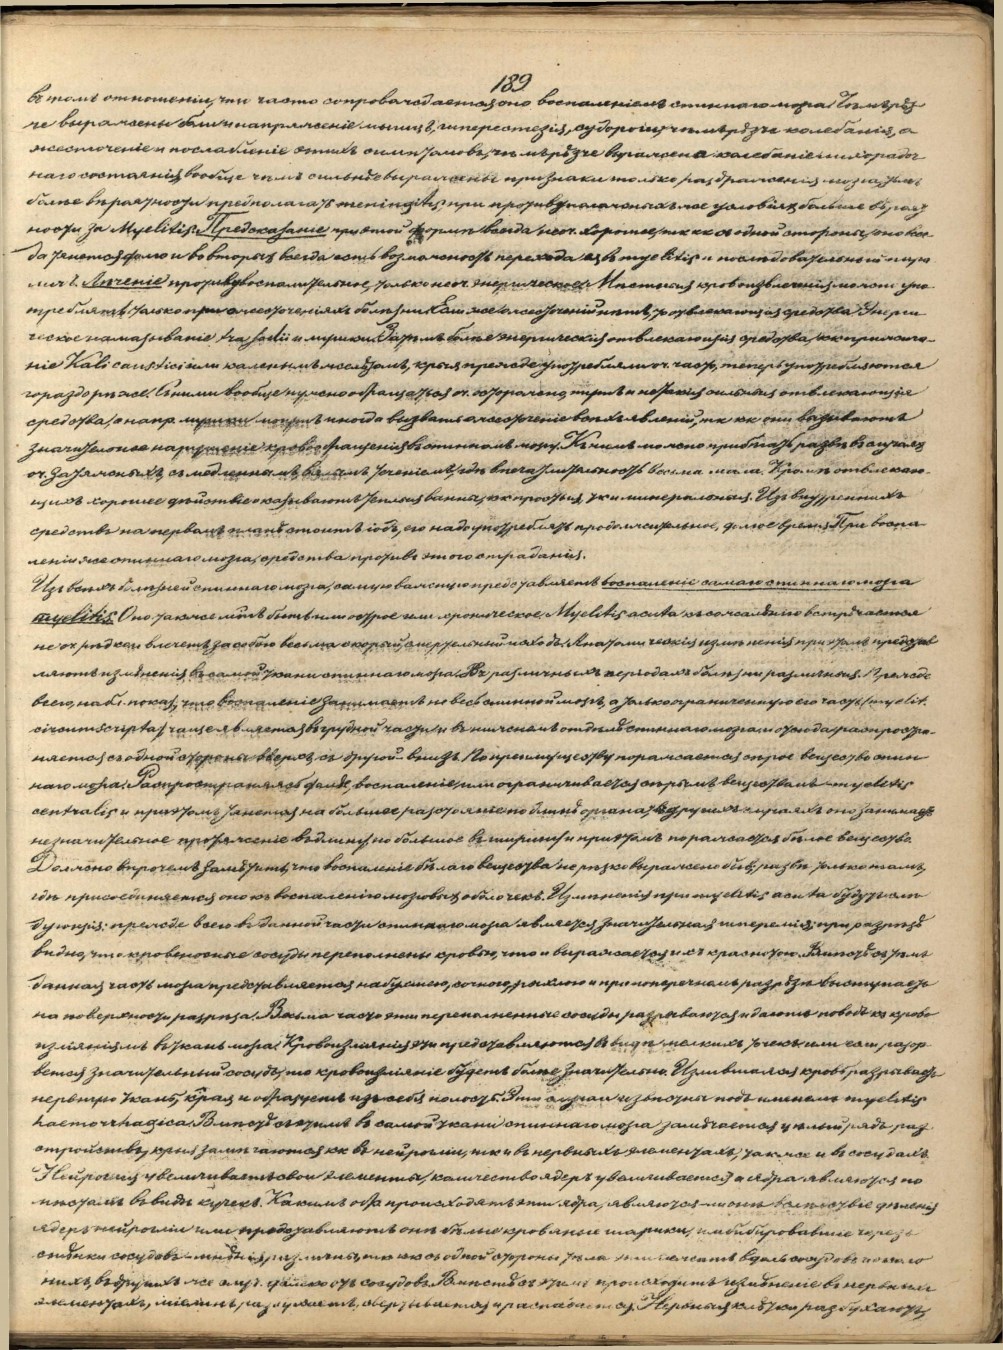 189
въ томъ отношеніи, что часто сопровождается оно воспаленіемъ спиннаго мозга. Чѣмъ рѣз
че выражены боли и напряженіе мышцъ, гиперестезія, судороги, чѣмъ рѣзче колебанія, а
жесточеніе и послабленіе этихъ симптомовъ, чѣмъ рѣзче выражена колебаніе лихорадоч
наго состоянія, вообще чѣмъ сильнѣе выражены признаки только раздраженія мозга, тѣмъ
болѣе вѣроятности предполагать meningitis, при противуположныхъ же условіяхъ больше вѣроят
ности за Myelitis. Предсказаніе при этой формѣ всегда не оч. хорошее, тк кк съ одной стороны, оно все
да тянется долго и во вторыхъ всегда есть возможность перехода въ myelitis и послѣдовательный
Лѣченіе противувоспалительное, только не оч. энергическое. Мѣстныя кровоизвлеченія можно упо
треблять только при ожесточеніяхъ болѣзни. Если же ожесточеній нѣтъ, то отвлекающія средства. Энерги
ческое намазываніе t-ra Jodii и мушки. Затѣмъ болѣе энергическія отвлекающія средства, кк прижига-
ніе Kali caustici или каленымъ желѣзомъ, крыя прежде употребляли оч. часто, теперь употребляются
гораздо рѣже. Съ ними вообще нужно обращаться оч. осторожно,
средства, а напр. мушки могутъ иногда вызвать ожесточеніе всѣхъ явленій, тк кк они вызываютъ
значительное нарушеніе кровообращенія въ спинномъ мозгу. Къ нимъ можно прибѣгать развѣ въ случаяхъ
оч. затяжныхъ, съ медленнымъ вялымъ теченіемъ, гдѣ впечатлительность весьма мала. Кромѣ отвлекаю-
щихъ хорошее дѣйствіе оказываютъ теплыя ванны, кк простыя, тк и минеральныя. Изъ внутреннихъ
средствъ на первомъ планѣ стоитъ іодъ, его надо употреблять продолжительное, долгое время. При воспа
леніи же спиннаго мозга, средства противъ этого страданія.
Изъ всѣхъ болѣзней спиннаго мозга, самую важную представляетъ воспаленіе самаго спиннаго мозга
myelitis. Оно также м. быть или острое или хроническое. Myelitis acuta къ сожалѣнію встрѣчается
не оч. рѣдко и влечетъ за собою весьма скорый смертельный исходъ. Анатомическія измѣненія при этомъ представ
ляютъ измѣненія въ самой ткани спиннаго мозга. Въ различныхъ періодахъ болѣзни различныя. Прежде
всего, набл. показ., что воспаленіе занимаетъ не весь спинной мозгъ, а только ограниченную его часть (myelit.
circumscripta), чаще является въ грудной части, и въ нижнемъ отдѣлѣ спиннаго мозга, и отсюда распростра-
няется съ одной стороны вверхъ, съ другой внизъ. По преимуществу поражается сѣрое вещество спин
наго мозга. Распространяясь далѣе, воспаленіе или ограничивается сѣрымъ веществомъ — myelitis
centralis и при этомъ тянется на большее разстояніе по длинѣ органа, въ другихъ случаяхъ оно занимаетъ
незначительное протяженіе въ длину, но большое въ ширину, и при этомъ поражается бѣлое вещество.
Должно впрочемъ замѣтить, что воспаленіе бѣлаго вещества не рѣзко выражено бываетъ, развѣ только тамъ,
гдѣ присоединяется оно къ воспаленію мозговыхъ оболочекъ. Измѣненія при myelitis acuta будутъ слѣ
дующія: прежде всего въ данной части спиннаго мозга является значительная гиперемія; при разрѣзѣ
видно, что кровеносные сосуды переполнены кровью, что и выражается ихъ краснотою. Вмѣстѣ съ тѣмъ
данная часть мозга представляется набухшею, сочною, рыхлою и при поперечномъ разрѣзѣ выступаетъ
на поверхности разрѣза. Весьма часто эти переполненные сосуды разрываются и даютъ поводъ къ крово
изліяніямъ въ ткань мозга. Кровоизліянія эти представляются въ видѣ мелкихъ точекъ или если разор-
вется значительный сосудъ, то кровоизліяніе будетъ болѣе значительно. Излившаяся кровь разрываетъ
нервную ткань, края и образуетъ изъ себя полость. Эти случаи извѣстны подъ именемъ myelitis
haemorrhagica. Вмѣстѣ съ этимъ въ самой ткани спиннаго мозга замѣчается цѣлый рядъ раз
стройствъ, крыя замѣчаются кк въ нейрогліи, тк и въ нервныхъ элементахъ, также и въ сосудахъ.
Нейроглія увеличиваетъ свои элементы, количество ядеръ увеличивается, а ядра являются по
мѣстамъ въ видѣ кучекъ. Какимъ обр. происходятъ эти ядра, являются-ли они вслѣдствіе дѣленія
ядеръ нейрогліи или представляютъ онѣ бѣлые кровяные шарики, имбибировавшіе черезъ
стѣнки сосудовъ — мнѣнія различны, тк кк съ одной стороны тѣла эти лежатъ вдоль сосудовъ и около
нихъ, въ другихъ же случ. далеко отъ сосудовъ. Вмѣстѣ съ этимъ происходитъ измѣненіе въ нервныхъ
элементахъ, міелинъ разбухаетъ, свертывается и распадается. Нервныя клѣтки разбухаютъ,